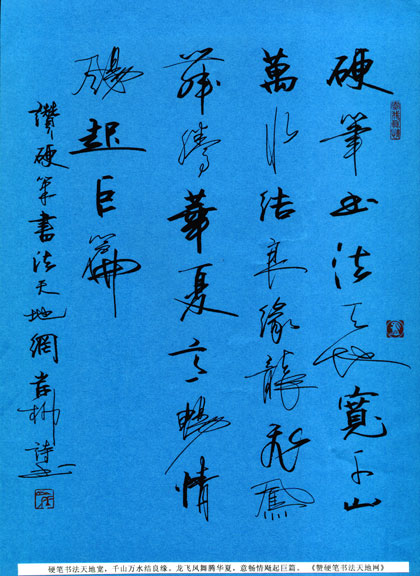 硬筆书法天地寬千山
萬水结良緣龍飛鳳
舞騰華夏意暢情
颺起巨篇
讚硬筆書法天地網
硬笔书法天地宽，千山万水结良缘。龙飞凤舞腾华夏，意畅情飏起巨篇。《赞硬笔书法天地网》